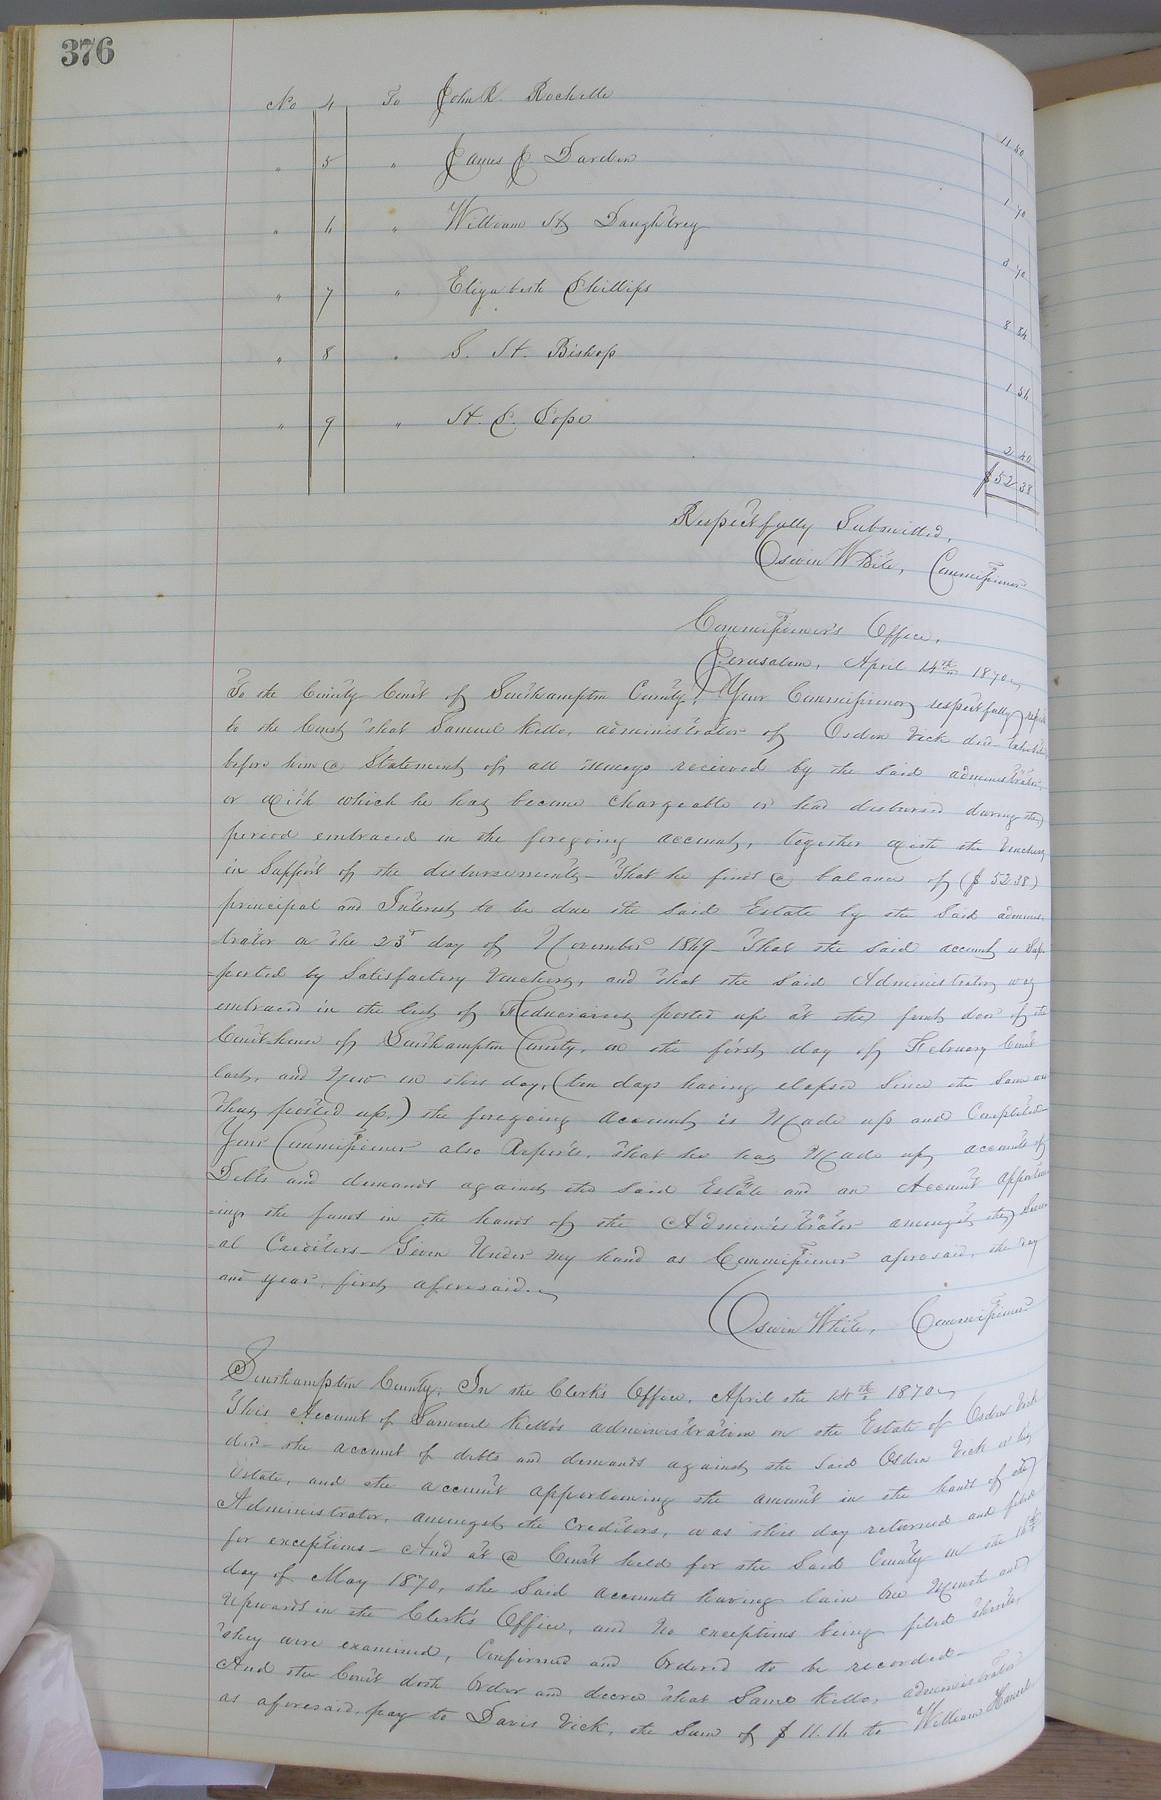 376
No 4 To John R. Rochelle 11 50
" 5 " James J Darden 1 70
" 6 " William H Daughtrey 3 70
" 7 " Elizabeth Phillips 8 54
" 8 " S. H. Bishop 1 56
" 9 " H. P. Pope 2 40
$52 38
Respectfully Submitted,
Oswin White, Commissioner
Commissioner's Office,
Jerusalem, April 14th 1870
To the County Court of Southampton County, Your Commissioner respectfully reports
to the Court that Samuel Kello, administrator of Osdon Vick decd exhibited
before him a Statement of all moneys received by the said administrator,
or with which he has become chargeable or had disbursed during the
period embraced in the foregoing account, together with the Vouchers
in Support of the disbursements – That he finds a balance of ($52.38)
principal and Interest to be due the said Estate by the said adminis-
trator on the 23d day of November 1869 – That the said account is Sup-
-ported by Satisfactory Vouchers, and that the said Administrator was
embraced in the list of Fiduciaries posted up at the front door of the
Court-house of Southampton County, on the first day of February Court
last, and Now on this day, (ten days having elapsed Since the Same was
thus posted up,) the foregoing account is Made up and Completed –
Your Commissioner also Reports, that he has Made up accounts of
Debts and demands against the said Estate and an Account apportion
-ing the funds in the hands of the Administrator amongst the Sever
-al Creditors – Given Under my hand as Commissioner aforesaid, the day
and year, first aforesaid.
Oswin White, Commissioner
Southampton County: In the Clerk's Office, April the 14th 1870
This Account of Samuel Kello's administration on the Estate of Osdon Vick
decd – the account of debts and demands against the said Osdon Vick or his
Estate, and the account apportioning the amount in the hands of the
Administrator, amongst the Creditors, was this day returned and filed
for exceptions – And at a Court held for the Said County on the 16th
day of May 1870, the Said accounts having lain One Month and
Upwards in the Clerk's Office, and No exceptions being filed thereto,
they were examined, Confirmed and Ordered to be recorded –
And the Court doth Order and decree that Saml Kello, administrator
as aforesaid, pay to Davis Vick, the Sum of $11.16 to William